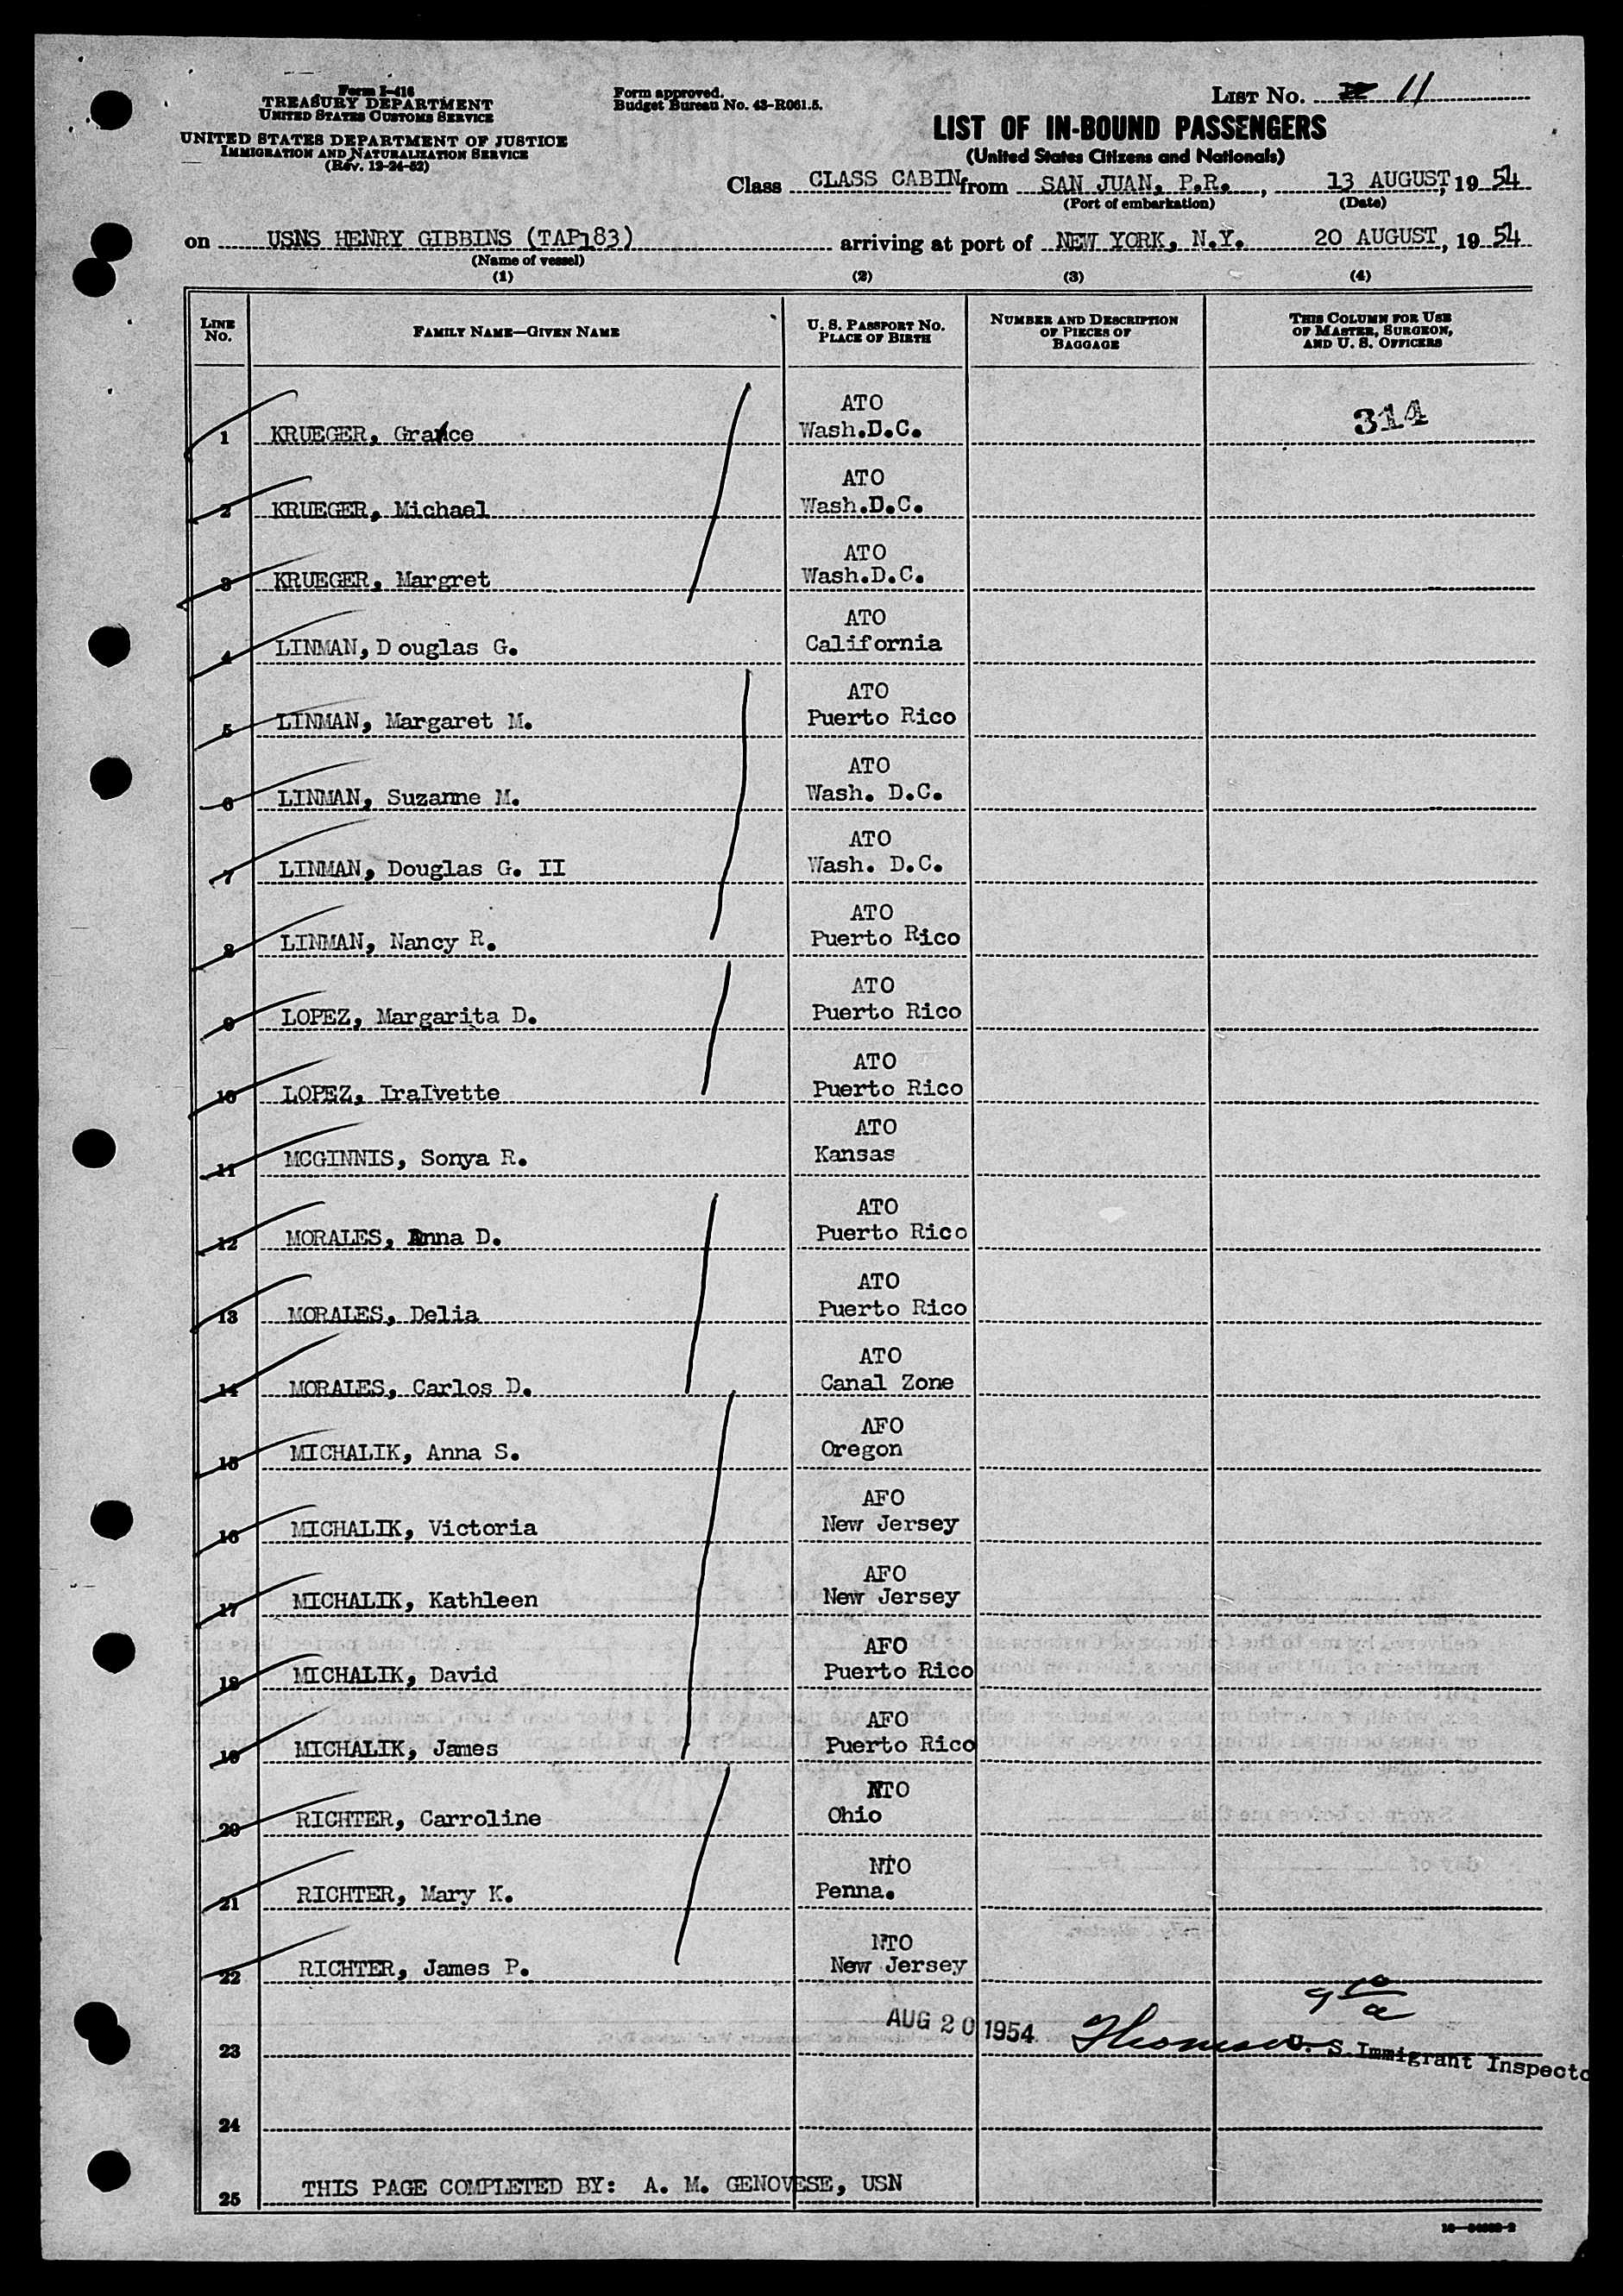 Form I-416
TREASURY DEPARTMENT
UNITED STATES CUSTOMS SERVICE
UNITED STATES DEPARTMENT OF JUSTICE
IMMIGRATION AND NATURALIZATION SERVICE
(Rev. 12-24-52)
Form approved.
Budget Bureau No. 43-R061.5.
LIST NO. 11
LIST OF IN-BOUND PASSENGERS
(United States Citizens and Nationals)
Class CLASS CABIN from SAN JUAN, P.R., 13 AUGUST, 1954
(Port of embarkation) (Date)
on USNS HENRY GIBBINS (TAP183) arriving at port of NEW YORK, N.Y. 20 AUGUST, 1954
(Name of vessel)
(1) (2) (3) (4)
LINE NO. FAMILY NAME—GIVEN NAME U. S. PASSPORT NO. PLACE OF BIRTH NUMBER AND DESCRIPTION OF PIECES OF BAGGAGE THIS COLUMN FOR USE OF MASTER, SURGEON, AND U. S. OFFICERS
ATO 314
1 KRUEGER, Grance Wash.D.C.
ATO
2 KRUEGER, Michael Wash.D.C.
ATO
3 KRUEGER, Margret Wash.D.C.
ATO
4 LINMAN, D ouglas G. California
ATO
5 LINMAN, Margaret M. Puerto Rico
ATO
6 LINMAN, Suzanne M. Wash. D.C.
ATO
7 LINMAN, Douglas G. II Wash. D.C.
ATO
8 LINMAN, Nancy R. Puerto Rico
ATO
9 LOPEZ, Margarita D. Puerto Rico
ATO
10 LOPEZ, IraIvette Puerto Rico
ATO
11 MCGINNIS, Sonya R. Kansas
ATO
12 MORALES, Anna D. Puerto Rico
ATO
13 MORALES, Delia Puerto Rico
ATO
14 MORALES, Carlos D. Canal Zone
AFO
15 MICHALIK, Anna S. Oregon
AFO
16 MICHALIK, Victoria New Jersey
AFO
17 MICHALIK, Kathleen New Jersey
AFO
18 MICHALIK, David Puerto Rico
AFO
19 MICHALIK, James Puerto Rico
NTO
20 RICHTER, Carroline Ohio
NTO
21 RICHTER, Mary K. Penna.
NTO
22 RICHTER, James P. New Jersey
AUG 20 1954
23 U. S. Immigrant Inspecto
24
25 THIS PAGE COMPLETED BY: A. M. GENOVESE, USN